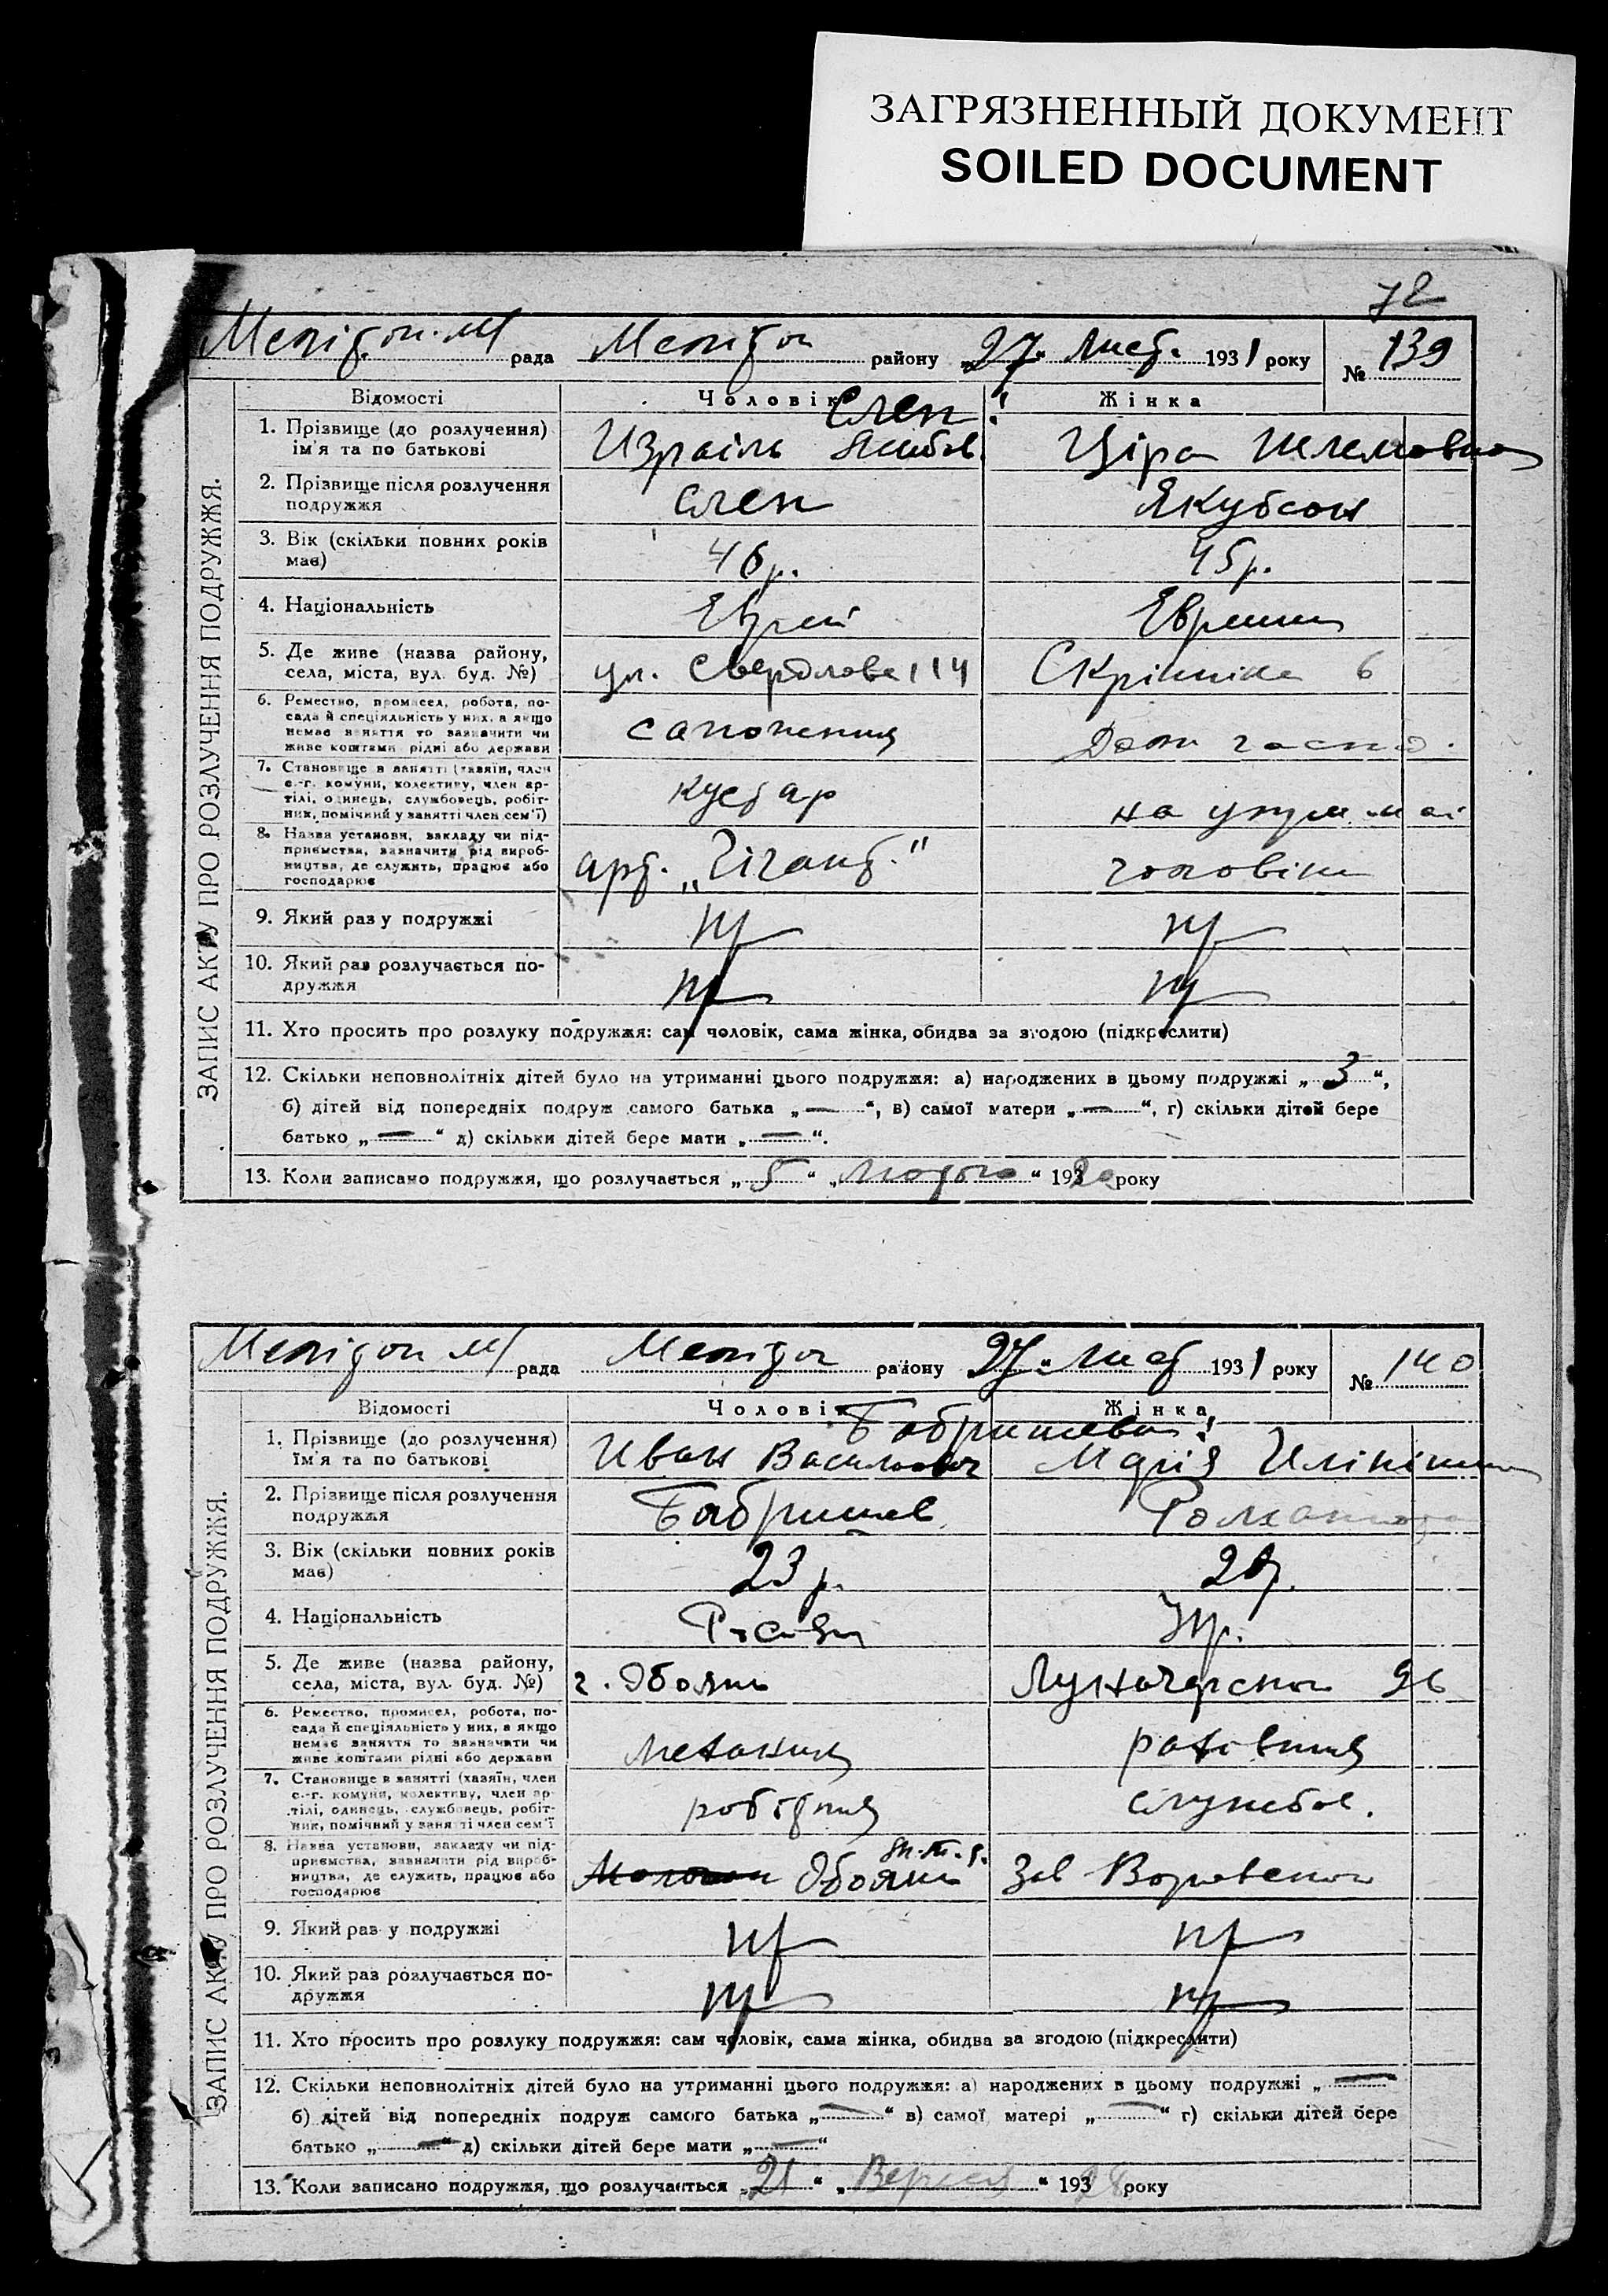 ЗАГРЯЗНЕННЫЙ ДОКУМЕНТ
SOILED DOCUMENT
72
рада району „27“ Лист. 1931 року № 139
ЗАПИС АКТУ ПРО РОЗЛУЧЕННЯ ПОДРУЖЖЯ.
Відомості Чоловік Жінка
Слен
1. Прізвище (до розлучення) ім'я та по батькові Израіль Ціра Шлемовна
2. Прізвище після розлучення подружжя Слен Якубсон
3. Вік (скільки повних років має) 46 р. 45 р.
4. Національність Еврей
5. Де живе (назва району, села, міста, вул. буд. №) ул. Свердлова 114 6
6. Ремество, промисел, робота, посада й спеціяльність у них, а якщо немає заняття то зазначити чи живе коштами рідні або держави Дом. госпо.
7. Становище в занятті (хазяїн, член с.-г. комуни, колективу, член артілі, одинець, службовець, робітник, помічний у занятті член сем'ї) кустар на
8. Назва установи, закладу чи підприємства, зазначити рід виробництва, де служить, працює або господарює арт. „Гігант.“ чоловіка
9. Який раз у подружжі пр пр
10. Який раз розлучається подружжя пр пр
11. Хто просить про розлуку подружжя: сам чоловік, сама жінка, обидва за згодою (підкреслити)
12. Скільки неповнолітніх дітей було на утриманні цього подружжя: а) народжених в цьому подружжі „3“,
б) дітей від попередніх подруж самого батька „—“, в) самої матери „—“, г) скільки дітей бере
батько „—“ д) скільки дітей бере мати „—“.
13. Коли записано подружжя, що розлучається „5“ „Лютого“ 1920 року
рада району 27 „Лист 1931 року № 140
ЗАПИС АКТУ ПРО РОЗЛУЧЕННЯ ПОДРУЖЖЯ.
Відомості Чоловік Жінка
1. Прізвище (до розлучення) їм'я та по батькові Иван Василович Марія
2. Прізвище після розлучення подружжя
3. Вік (скільки повних років має) 23 р.
4. Національність Укр.
5. Де живе (назва району, села, міста, вул. буд. №) г. Обоянь 96
6. Ремество, промисел, робота, посада й спеціяльність у них, а якщо немає заняття то зазначити чи живе коштами рідні або держави Механик
7. Становище в занятті (хазяїн, член с.-г. комуни, колективу, член артілі, одинець, службовець, робітник, помічний у занятті член сем'ї робітник службов.
8. Назва установи, закладу чи підприємства, зазначити рід виробництва, де служить, працює або господарює Обоянь Зав
9. Який раз у подружжі пр пр
10. Який раз розлучається подружжя пр пр
11. Хто просить про розлуку подружжя: сам чоловік, сама жінка, обидва за згодою (підкреслити)
12. Скільки неповнолітніх дітей було на утриманні цього подружжя: а) народжених в цьому подружжі „—“
б) дітей від попередніх подруж самого батька „—“ в) самої матері „—“ г) скільки дітей бере
батько „—“ д) скільки дітей бере мати „—“
13. Коли записано подружжя, що розлучається „21“ „Вересня“ 1928 року